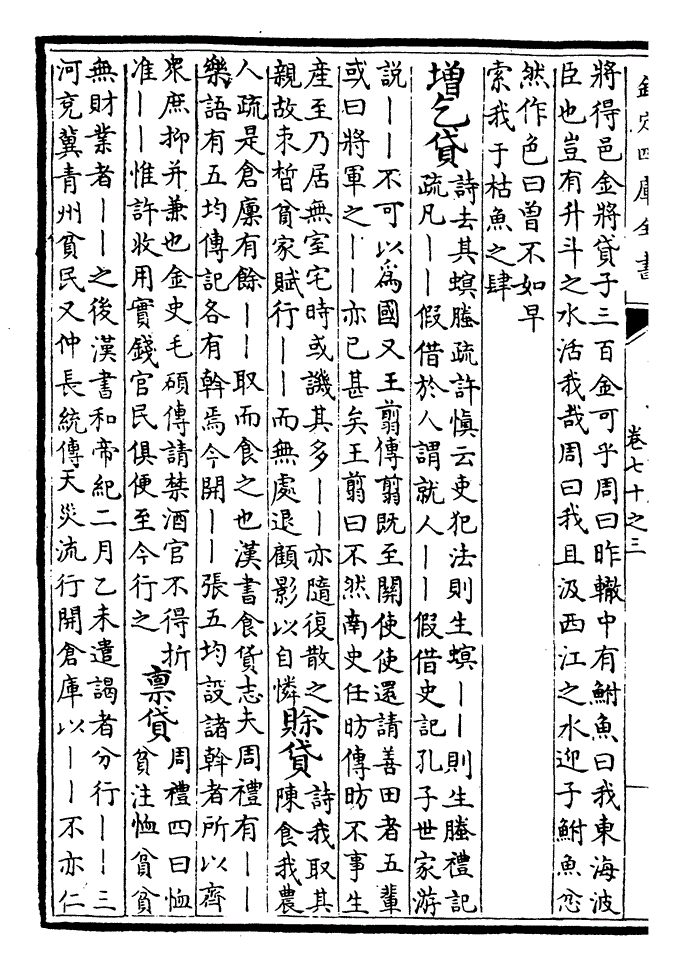 欽定四庫全書
卷七十之三
將得邑金將貸子三百金可乎周曰昨轍中有鮒魚曰我東海波
臣也豈有升斗之水活我哉周曰我且汲西江之水迎子鮒魚忿
然作色曰曾不如早
索我于枯魚之肆
增乞貸
詩去其螟螣疏許慎云吏犯法則生螟｜｜則生螣禮記
疏凡｜｜假借於人謂就人｜｜假借史記孔子世家游
說｜｜不可以爲國又王翦傳翦既至關使使還請善田者五輩
或曰將軍之｜｜亦已甚矣王翦曰不然南史任昉傳昉不事生
產至乃居無室宅時或譏其多｜｜亦隨復散之
親故束晳貧家賦行｜｜而無處退顧影以自憐
賖貸
詩我取其
陳食我農
人疏是倉廩有餘｜｜取而食之也漢書食貨志夫周禮有｜｜
樂語有五均傳記各有斡焉今開｜｜張五均設諸斡者所以齊
衆庶抑并兼也金史毛碩傳請禁酒官不得折
准｜｜惟許收用實錢官民俱便至今行之
稟貸
周禮四曰恤
貧注恤貧貧
無財業者｜｜之後漢書和帝紀二月乙未遣謁者分行｜｜三
河兗冀青州貧民又仲長統傳天災流行開倉庫以｜｜不亦仁